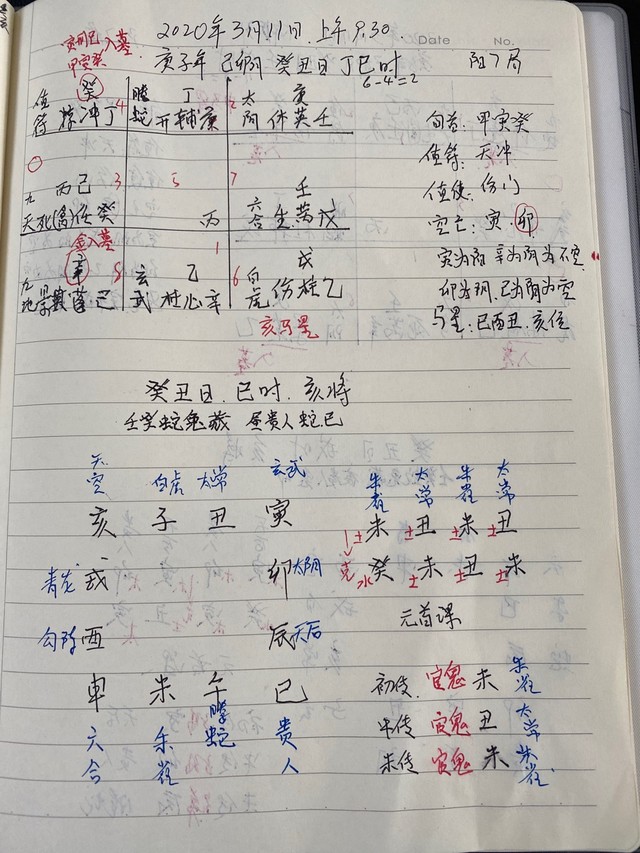 2020年3月11日.上午9:30.
Date No.
寅刑巳入墓.
甲寅癸
庚子年 己卯月 癸丑日 丁巳时 阳7局
6-4=2
癸 丁 庚
值符 冲丁 4 螣蛇 开辅庚 太阴 休英壬 2
旬首: 甲寅癸
值符: 天冲
丙己 3 5 7 壬
值使: 伤门
九天 死(禽)任癸 丙 六合 生芮戊
空亡: 寅.卯
金入墓 1 戊
寅为阳 辛为阴为不空
辛 8 玄武 乙 6 白虎 伤柱乙
九地 景蓬己 杜心辛
卯为阴.己为阴为空
亥马星
马星: 巳酉丑.亥位
癸丑日. 巳时. 亥将
壬癸蛇兔藏 昼贵人蛇巳
天空 白虎 太常 玄武 朱雀 太常 朱雀 太常
亥 子 丑 寅 土未 土丑 土未 土丑
青龙 戌 卯 太阴 克 水癸 土未 土丑 土未
勾陈 酉 辰 天后 元首课
申 未 午 巳 初传 官鬼 未 朱雀
六合 朱雀 螣蛇 贵人 中传 官鬼 丑 太常
末传 官鬼 未 朱雀